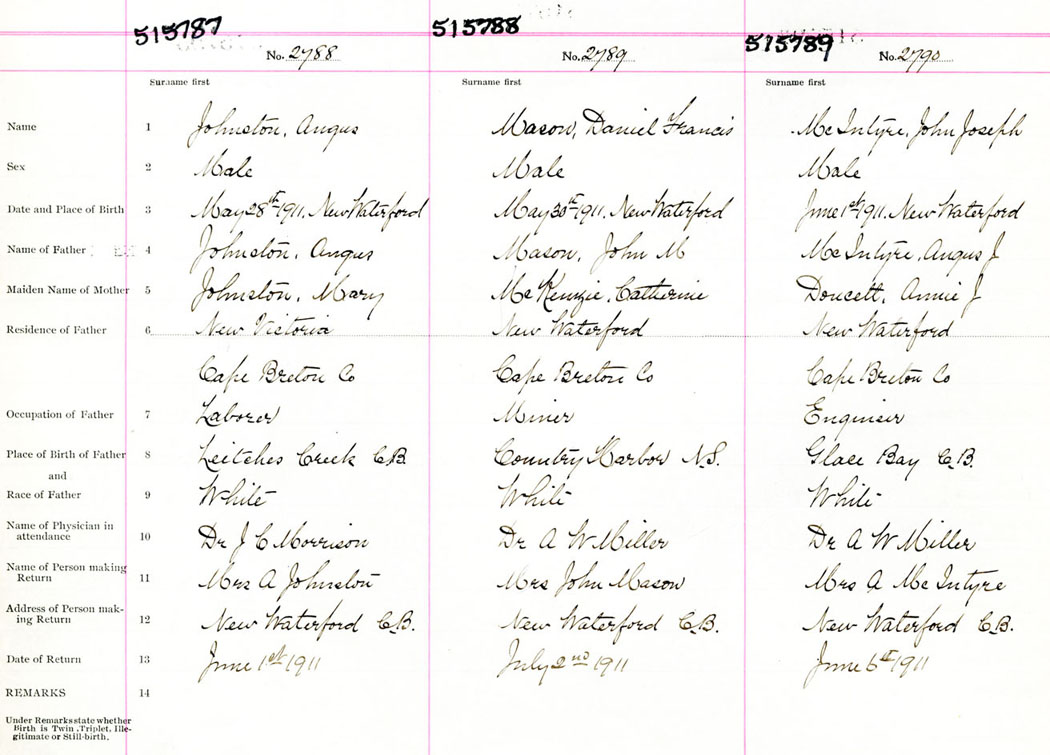 515787 515788 515789
No. 2788 No. 2789 No. 2790
Surname first Surname first Surname first
Name 1 Johnston, Angus Mason, Daniel Francis McIntyre, John Joseph
Sex 2 Male Male Male
Date and Place of Birth 3 May 28th 1911. New Waterford May 30th 1911. New Waterford June 1st 1911. New Waterford
Name of Father 4 Johnston, Angus Mason, John M McIntyre, Angus J
Maiden Name of Mother 5 Johnston, Mary McKenzie, Catherine Doucett, Annie J
Residence of Father 6 New Victoria New Waterford New Waterford
Cape Breton Co Cape Breton Co Cape Breton Co
Occupation of Father 7 Laborer Miner Engineer
Place of Birth of Father 8 Leitches Creek C.B. Country Harbor N.S. Glace Bay C.B.
and
Race of Father 9 White White White
Name of Physician in
attendance 10 Dr J C Morrison Dr A W Miller Dr A W Miller
Name of Person making
Return 11 Mrs A Johnston Mrs John Mason Mrs A McIntyre
Address of Person mak-
ing Return 12 New Waterford C.B. New Waterford C.B. New Waterford C.B.
Date of Return 13 June 1st 1911 July 2nd 1911 June 6th 1911
REMARKS 14
Under Remarks state whether
Birth is Twin, Triplet, Ille-
gitimate or Still-birth.